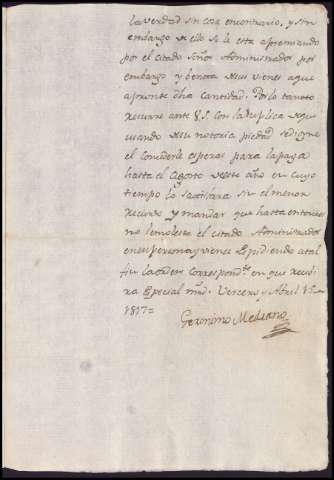 la verdad sin cosa encontrario, y sin
embargo de ello se le esta apremiando
por el citado Señor Administrador por
embargo y benta de sus vienes a que
apronte dha Cantidad. Por lo tanto
recurre ante V.S. con la Suplica de que
usando de su notoria piedad se digne
el concederle esperas para la paga
hasta el Agosto de este año en cuyo
tiempo la satisfara sin el menor
recurso y mandar que hasta entonces
no le moleste el citado Administrador
en su persona y vienes Expidiendo a tal
fin la orden correspond.te en que recivi
ra Especial mrd. Vercero y Abril 15 de
1817=
Geronimo Mediano